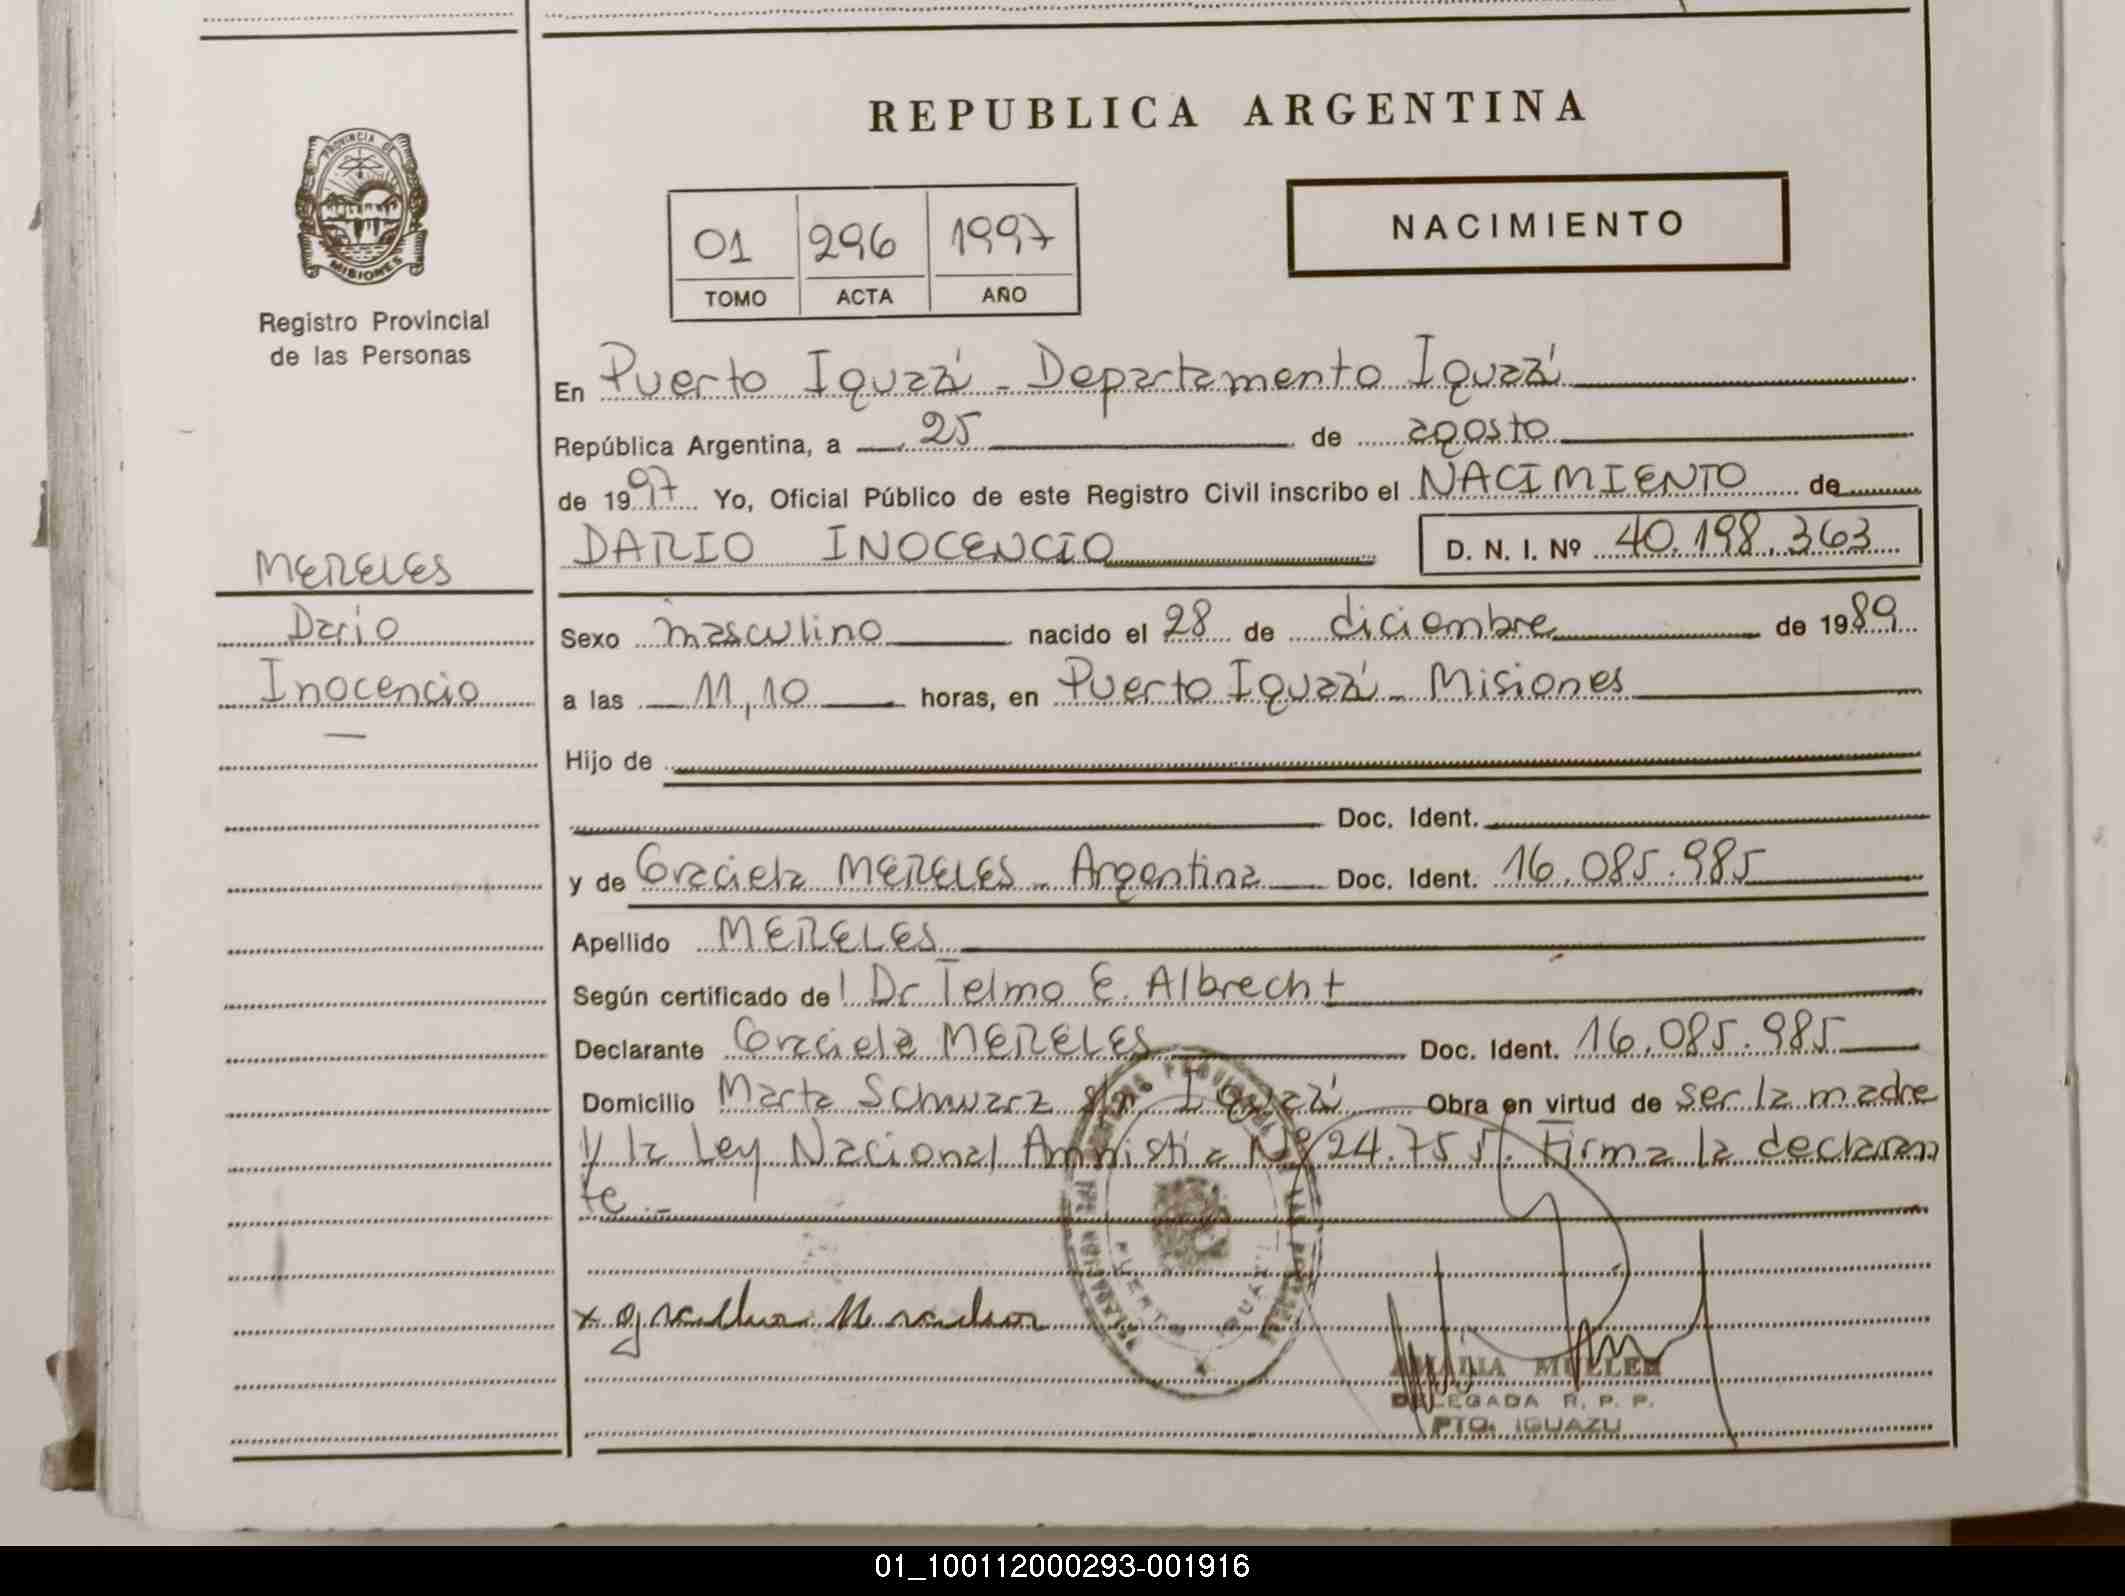 REPUBLICA ARGENTINA
PROVINCIA DE
MISIONES
Registro Provincial
de las Personas
NACIMIENTO
01 296 1997
TOMO ACTA AÑO
En Puerto Iguazú - Departamento Iguazú
República Argentina, a 25 de agosto
de 1997 Yo, Oficial Público de este Registro Civil inscribo el NACIMIENTO de
DARIO INOCENCIO D. N. I. Nº 40.198.363
MERELES
Dario
Inocencio
Sexo masculino nacido el 28 de diciembre de 1989
a las 11,10 horas, en Puerto Iguazú - Misiones
Hijo de
Doc. Ident.
y de Graciela MERELES - Argentina Doc. Ident. 16.085.985
Apellido MERELES
Según certificado del Dr Telmo E. Albrecht
Declarante Graciela MERELES Doc. Ident. 16.085.985
Domicilio Marta Schwarz s/n. Iguazú Obra en virtud de ser la madre
y la Ley Nacional Amnistia Nº 24.755. Firma la declaran
te.-
PUERTO IGUAZU
AMALIA MULLER
DELEGADA R. P. P.
PTO. IGUAZU
01_100112000293-001916